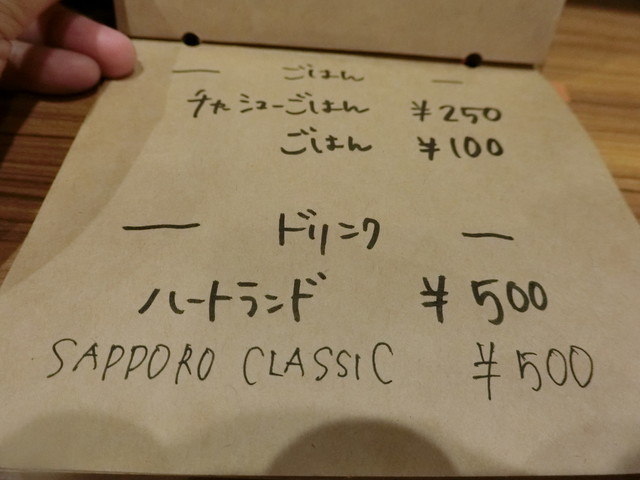 — ごはん —
チャーシューごはん ¥250
ごはん ¥100
— ドリンク —
ハートランド ¥500
SAPPORO CLASSIC ¥500